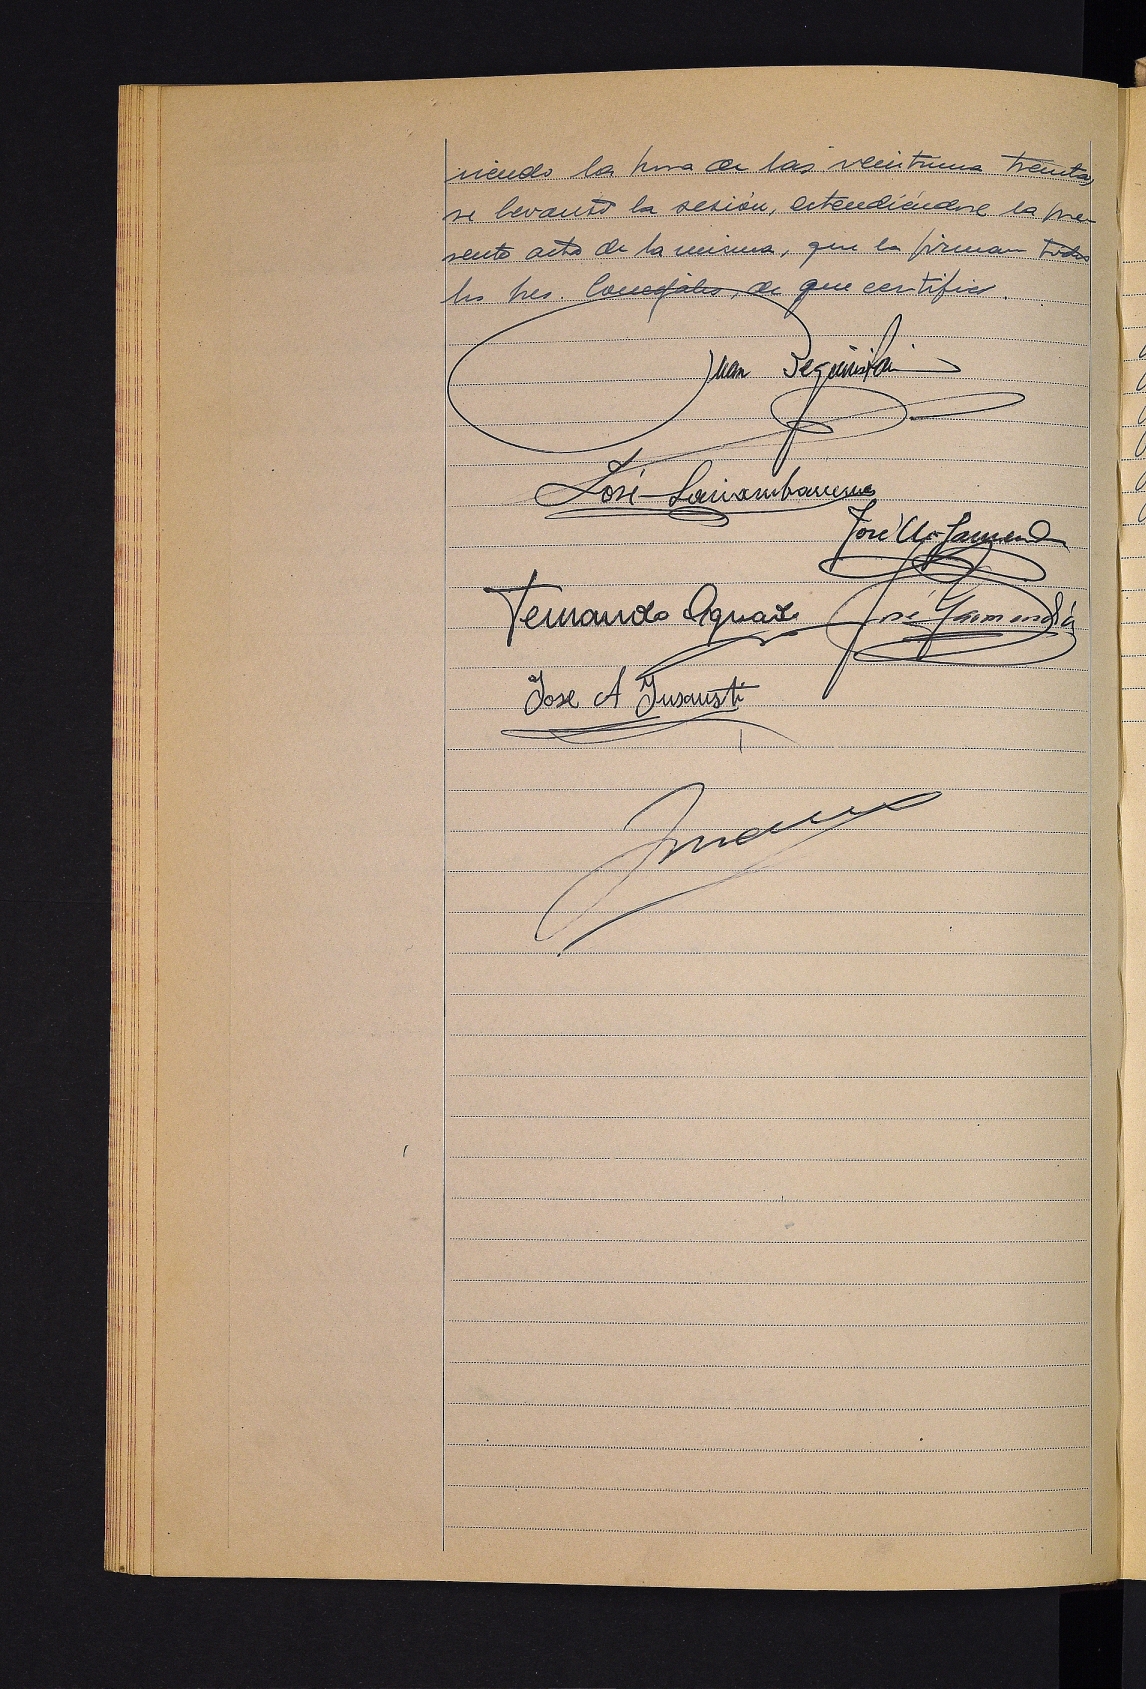 siendo la hora de las veintiuna treinta,
se levantó la sesión, extendiéndose la pre-
sente acta de la misma, que la firman todos
los Sres. Concejales, de que certifico.
Juan Beguiristain
José
José
Fernando Aguado José Garmendia
Jose A Insausti